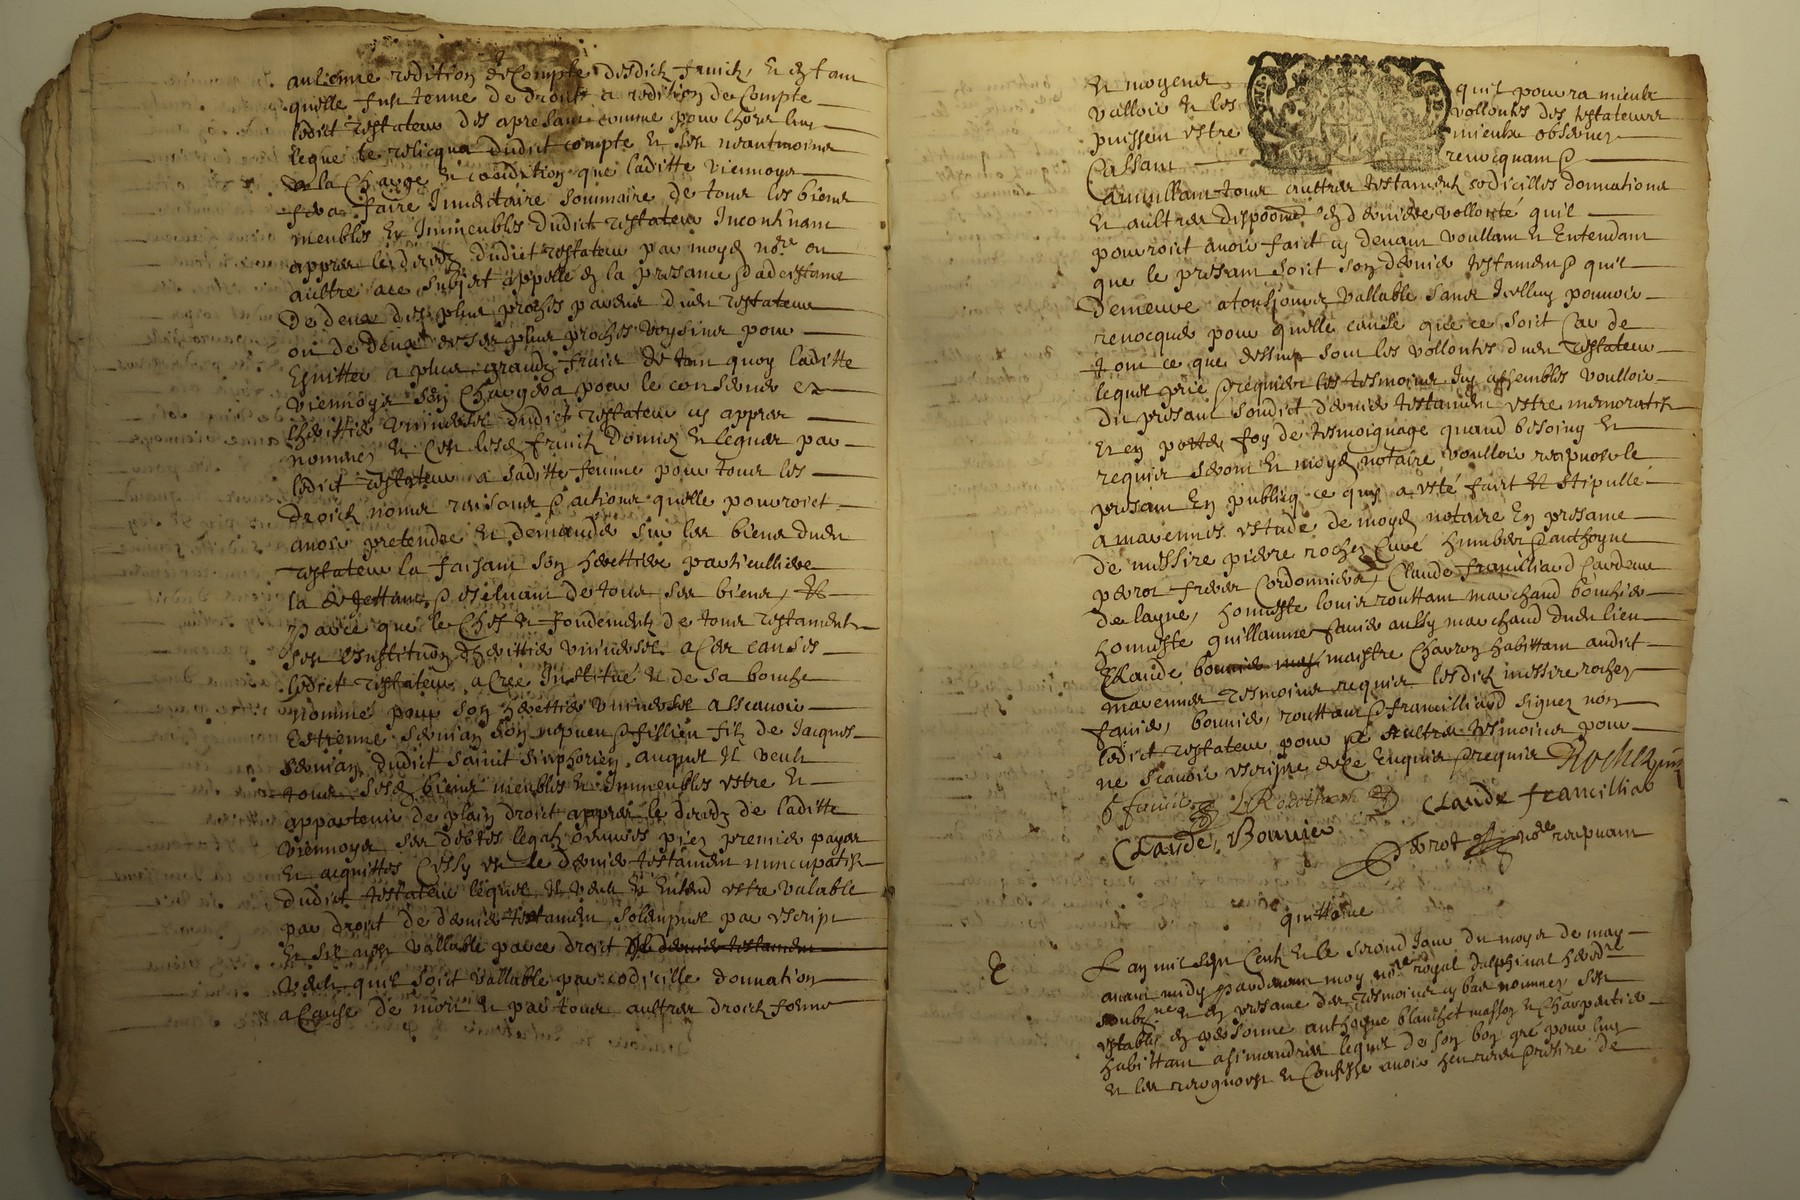 aulcune redition de Compte desdicts fruicts, et en tant
quelle fust tenue de droict a redition de Compte
ledict testateur des apresant comme pour lhors luy
legue le relicqua dudict compte et ses neantmoins
a la Charge et condition que laditte viennoys
fera faire Inventaire sommaire de tous les biens
meubles et Immeubles dudict testateur Incontinant
appres le deceds dudict testateur par moyd nore ou
aultre ace subject appelle en la presance
de deux des plus proches parens dud testateur
ou de deux de ses plus proches voysins pour
Esvitter a plus grands fraix de tout quoy laditte
viennoys sen Chargera pour le conserver
Lheritier universel dudict testateur cy appres
nommes et les fruicts donnes et legues par
ledict testateur a saditte femme pour tous les
droicts noms raisons & actions quelle pourroict
avoir pretendre et demander sur les biens dud
testateur la faisant son heritiere particulliere
la & excluant de tous ses biens, Et
parce que le Chef et fondement de tous testaments
est Linstitution dheritier universel a ces causes
ledict testateur a Cree Institué et de sa bouche
nommé pour son heritier universel asscavoir
Estienne son nepveu & fillieu filz de Jacques
dudict sainct simphorien auquel Il veult
tous sesd biens meubles et Immeubles estre et
appartenir de plain droict appres le deceds de laditte
viennoys ses debtes legatz oeuvres pies premier payes
et acquittes Cessy est le dernier testament nuncupatif
dudict testateur lequel Il veult et Entend estre valable
par droict de dernier testament solempnel par escript
et sil nest vallable par ce droict
veult quil soict vallable par codicille donnation
a Cause de mort et par tous aultres droicts forme
et moyens quil pourra mieulx
valloir et les vollontes des testateurs
puissent estre mieulx observes
Cassant revocquant &
annullant tous aultres testaments codicilles donnations
et aultres disposons de derniere vollonté quil
pourroict avoir faict cy devant voullant et Entendant
que le presant soict son dernier testament & quil
demeure a tousjours vallable sans Icelluy pouvoir
revocquer pour quelle cause que ce soict Car de
tout ce que dessus sont les vollontes dud testateur
lequel prie & requier les tesmoins Icy assembles voulloir
du presant sondict dernier testament estre memoratifs
et en porter foy de tesmoignage quand besoing et
requis seront et moyd notaire voulloir recepvoir le
presant En publicq ce quy a esté faict et stipullé
a marennes estude de moyd notaire En presance
de messire pierre rocher Curé humbert & anthoyne
perrot freres Cordonniers, Claude francilliard Cardeur
de layne, honneste louis routtant marchand bouchier
honneste guillaume favier aussy marchand dud lieu
Claude bonnier maistre Charron habittant audict
marennes tesmoins requis lesdicts messire rocher
favier, bonnier, routtant & francilliard signes non
ledict testateur pour ne
ne scavoir escripre de ce Enquis & requis Rocher
G favier L Routtant Claude francilliard
Claude Bonnier
Perrot nore recepvant
quittance
Lan mil sept Cent et le second Jour du moys de may
avant midy pardevant moy nore royal dalphinal heredre
soubzne et en presance des tesmoins cy bas nommes sest
estably en personne anthoyne blanchet masson et Charpentier
habittant a simandres lequel de son bon gré pour luy
et les recognoist et Confesse avoir heu receu & retire de